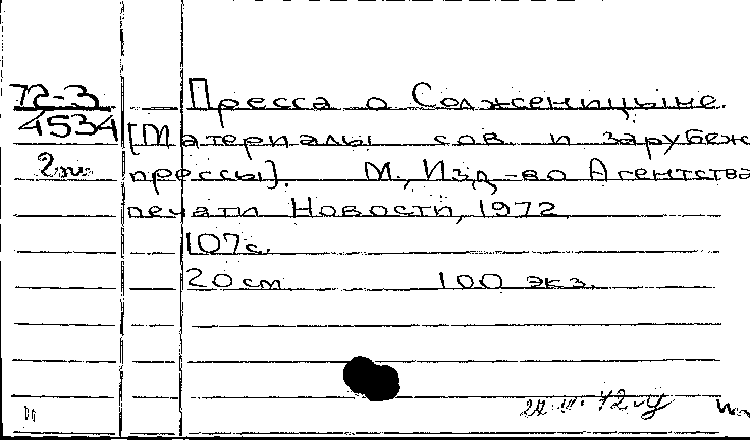 72-3
Пресса о Солженицыне.
4534
[Материалы сов. и зарубеж
прессы]. М., Изд-во Агентства
печати Новости, 1972
107с.
20 см 100 экз.